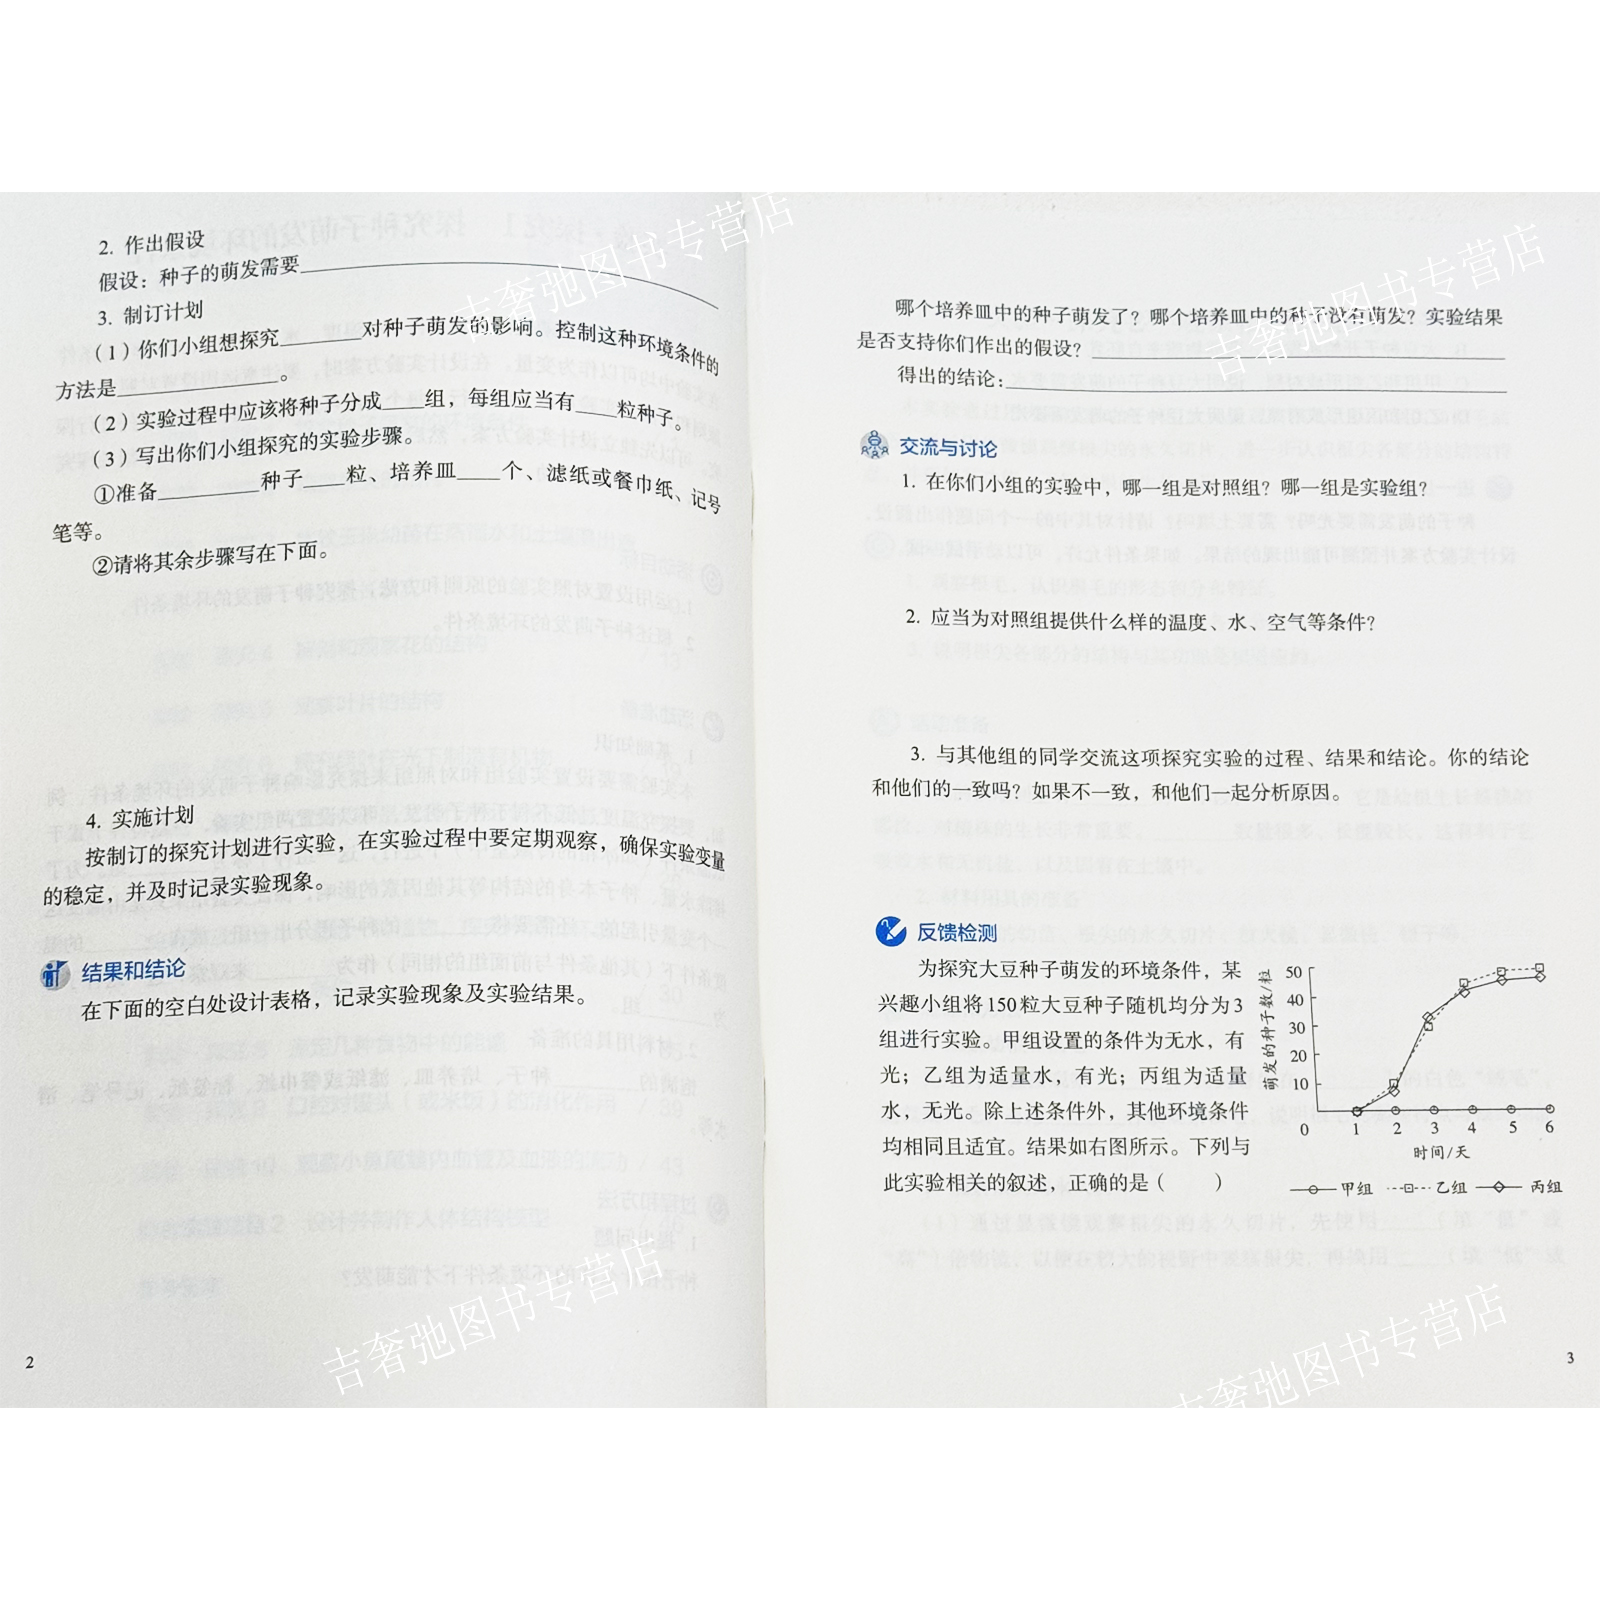 2. 作出假设
假设：种子的萌发需要
3. 制订计划
（1）你们小组想探究____对种子萌发的影响。控制这种环境条件的
方法是____。
（2）实验过程中应该将种子分成____组，每组应当有____粒种子。
（3）写出你们小组探究的实验步骤。
①准备____种子____粒、培养皿____个、滤纸或餐巾纸、记号
笔等。
②请将其余步骤写在下面。
4. 实施计划
按制订的探究计划进行实验，在实验过程中要定期观察，确保实验变量
的稳定，并及时记录实验现象。
结果和结论
在下面的空白处设计表格，记录实验现象及实验结果。
2
哪个培养皿中的种子萌发了？哪个培养皿中的种子没有萌发？实验结果
是否支持你们作出的假设？
得出的结论：
交流与讨论
1. 在你们小组的实验中，哪一组是对照组？哪一组是实验组？
2. 应当为对照组提供什么样的温度、水、空气等条件？
3. 与其他组的同学交流这项探究实验的过程、结果和结论。你的结论
和他们的一致吗？如果不一致，和他们一起分析原因。
反馈检测
为探究大豆种子萌发的环境条件，某
兴趣小组将150粒大豆种子随机均分为3
组进行实验。甲组设置的条件为无水，有
光；乙组为适量水，有光；丙组为适量
水，无光。除上述条件外，其他环境条件
均相同且适宜。结果如右图所示。下列与
此实验相关的叙述，正确的是（　　）
萌发的种子数/粒
50
40
30
20
10
0 1 2 3 4 5 6
时间/天
甲组 乙组 丙组
3
吉奢弛图书专营店
吉奢弛图书专营店
吉奢弛图书专营店
吉奢弛图书专营店